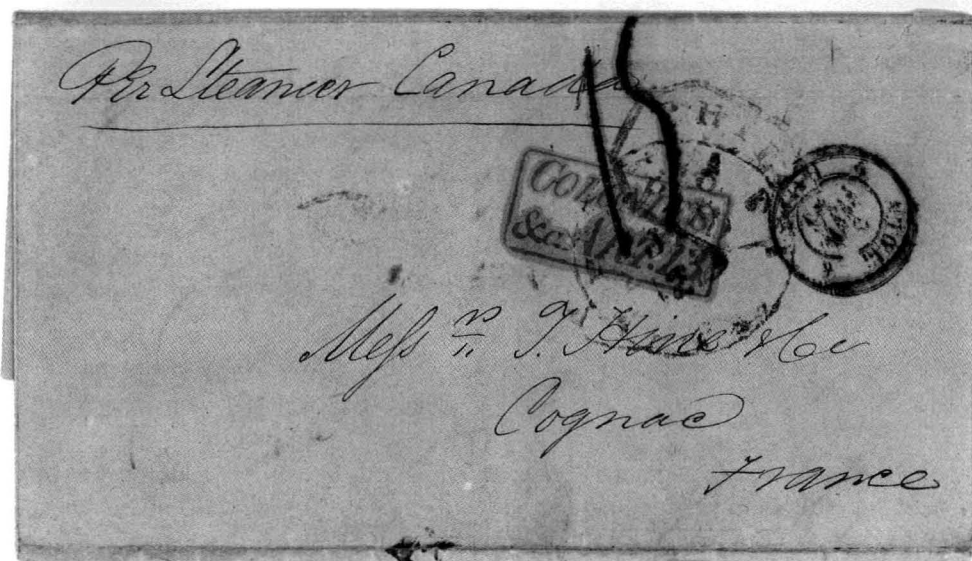 Per Steamer Canada
COLONIES
&c. ART. 13
Messrs. T. Hine & Co
Cognac
France